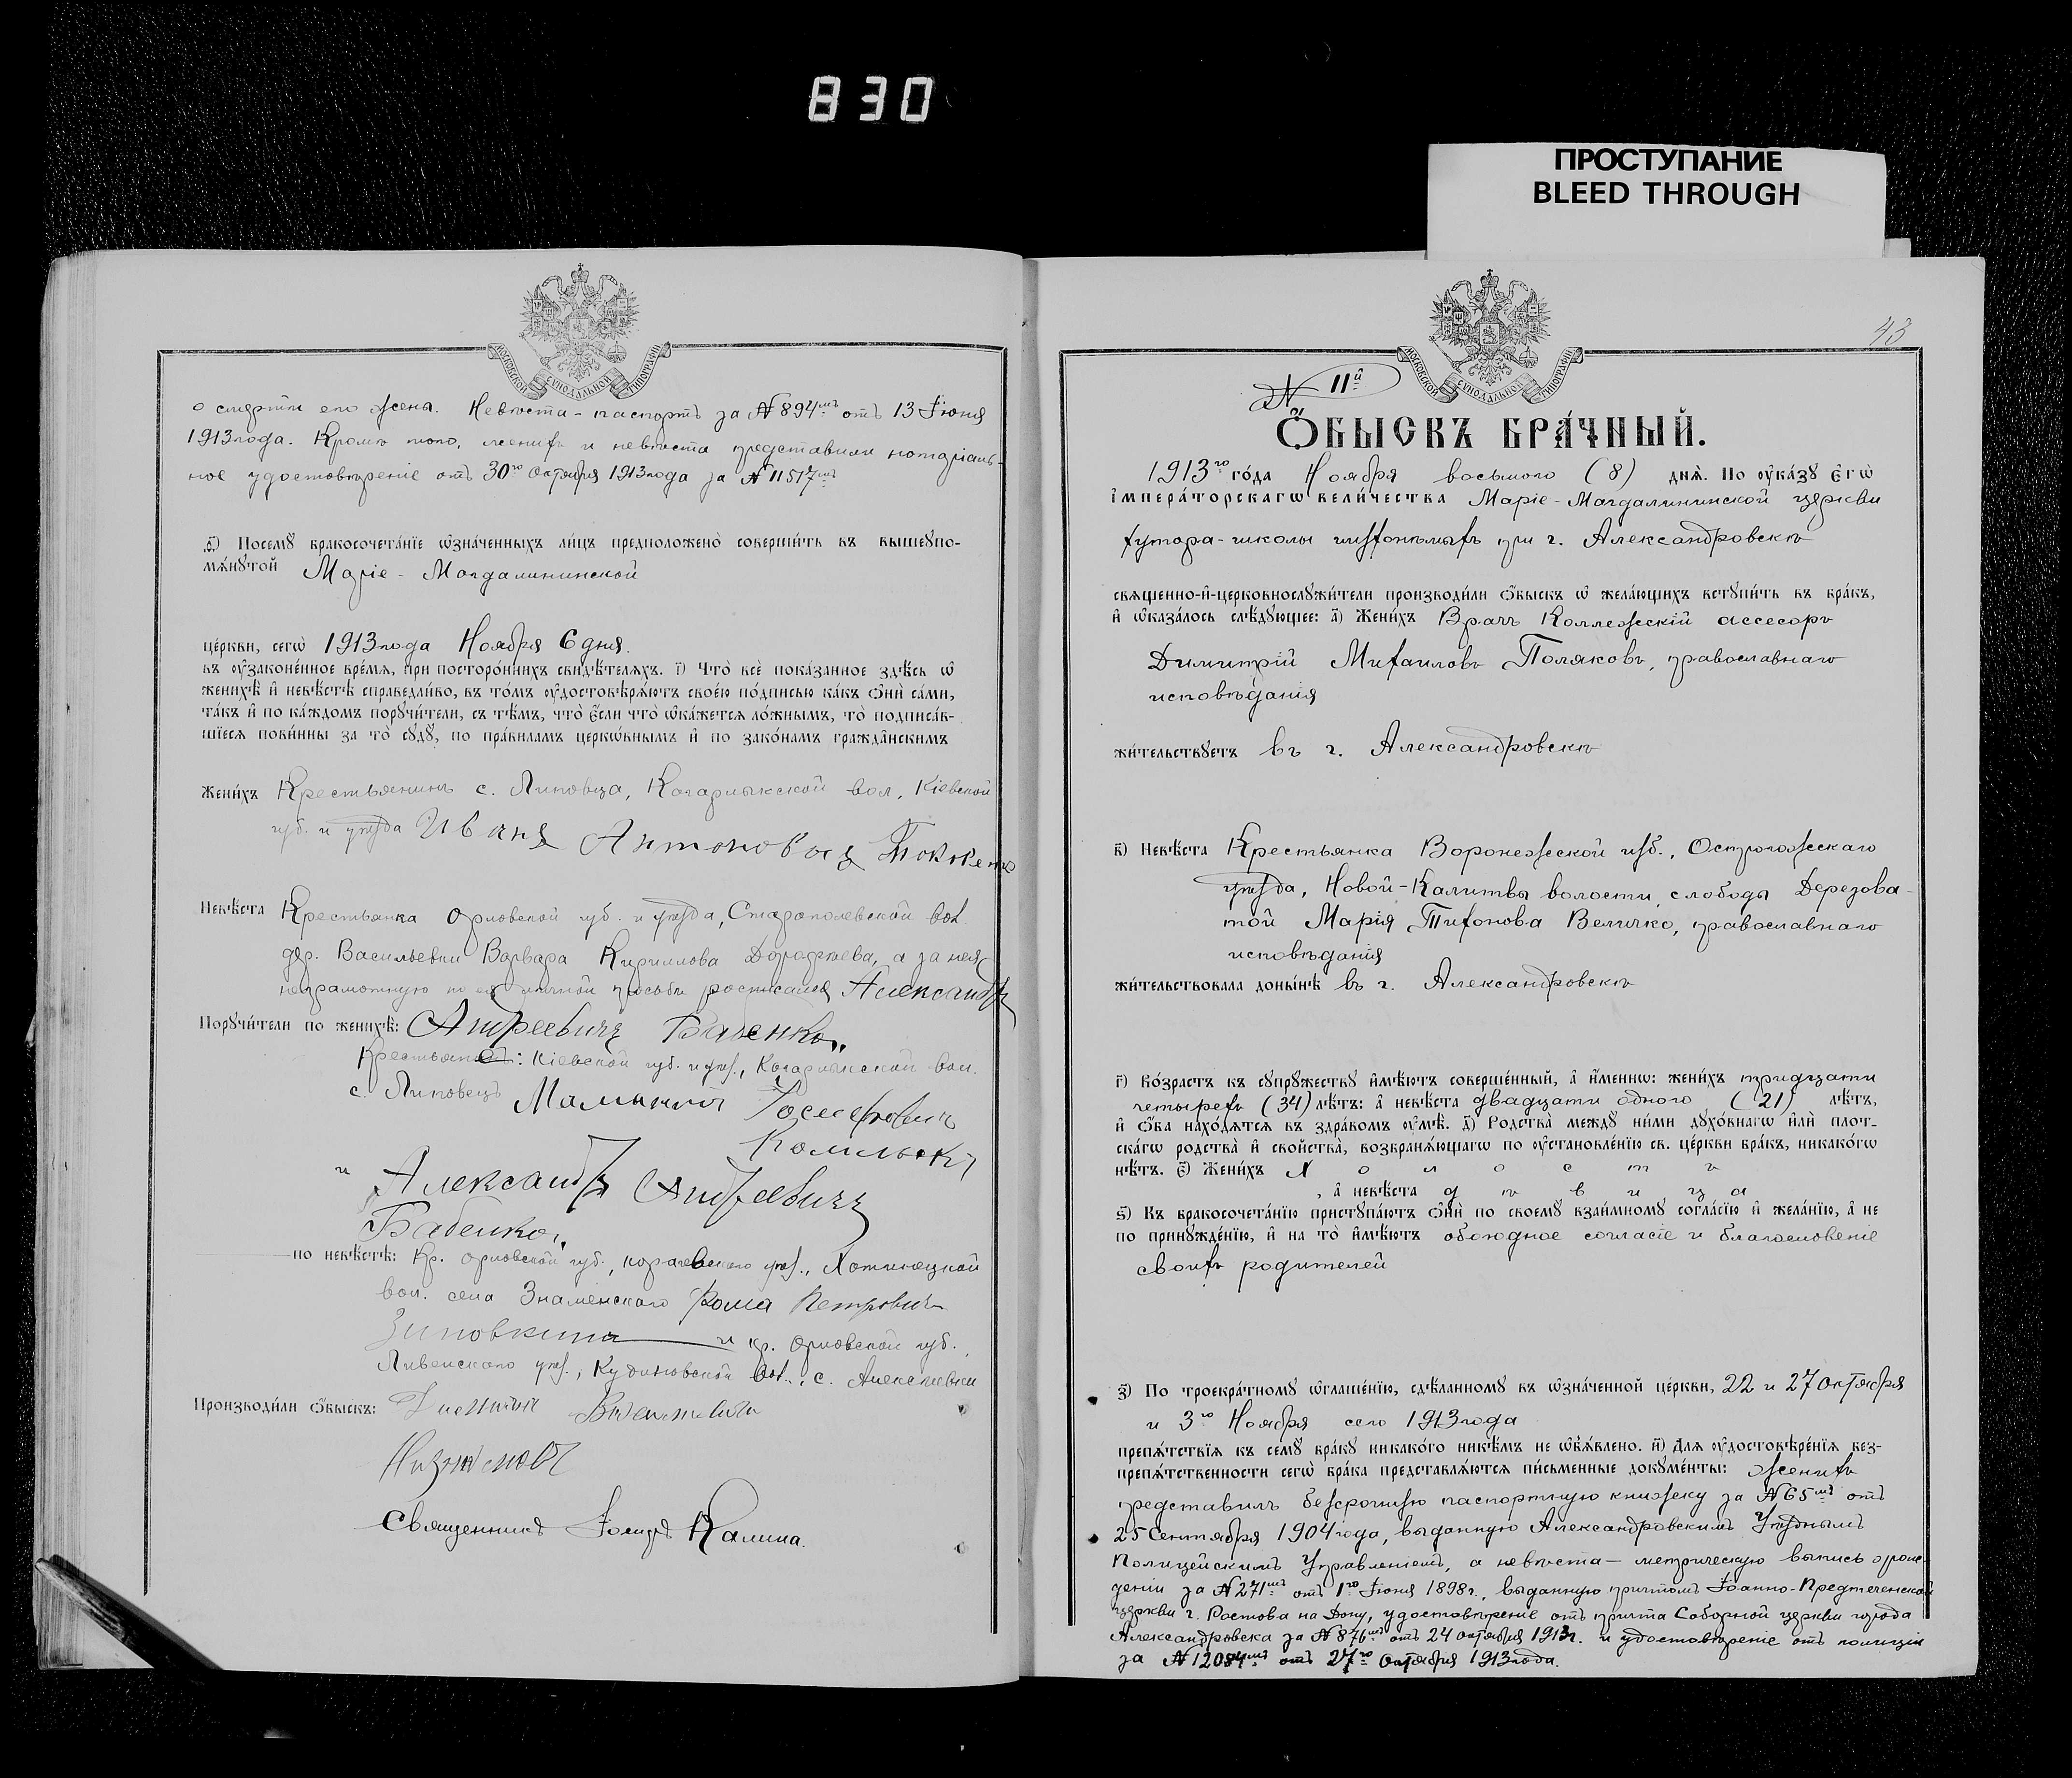 830
ПРОСТУПАНИЕ
BLEED THROUGH
МОСКОВСКОЙ СѴНОДАЛЬНОЙ ТИПОГРАФІИ
о смерти его жены. Невѣста - паспортъ за № 894мъ отъ 13 Іюня
1913 года. Кромѣ того, женихъ и невѣста представили нотаріаль-
ное удостовѣреніе отъ 30го Октября 1913 года за № 11517мъ
д҃і) Посемꙋ бракосочета́нїе ѡ҆зна́ченныхъ ли́цъ предположено̀ соверши́ть въ вышеꙋпо-
мѧ́нꙋтой Маріе - Магдалининской
це́ркви, сегѡ̀ 1913 года Ноября 6 дня.
въ ᲂу҆законе́нное вре́мѧ, при посторо́ннихъ свидѣ́телѧхъ. і҃) Что̀ всѐ пока́занное здѣ́сь ѡ҆
женихѣ̀ и҆ невѣ́стѣ справедли́во, въ то́мъ ᲂу҆достовѣрѧ́ютъ свое́ю по́дписью ка́къ ѻ҆нѝ са́ми,
та́къ и҆ по ка́ждомъ порꙋчи́тели, съ тѣ́мъ, что̀ є҆́сли что̀ ѡ҆ка́жетсѧ ло́жнымъ, то̀ подписа́в-
шїесѧ пови́нны за то̀ сꙋдꙋ̀, по пра́виламъ церко́внымъ и҆ по зако́намъ гражда́нскимъ
Жени́хъ Крестьянинъ с. Липовца, Кагарлыкской вол., Кіевской
губ. и уѣзда Иванъ Антоновъ
Невѣ́ста Крестьянка Орловской губ. и уѣзда, Старополевской вол.
дер. Васильевки Варвара Кириллова Дорофѣева, а за нея
неграмотную по ея личной просьбѣ росписался Александръ
Порꙋчи́тели по женихѣ̀: Андреевичъ Бабенко
Крестьяне: Кіевской губ. и уѣз., Кагарлыкской вол.
с. Липовецъ
и Александръ Андреевичъ
Бабенко
по невѣ́стѣ: Кр. Орловской губ., Карачевскаго уѣз., Хотинецкой
вол. села Знаменскаго Фома Петровичъ
и кр. Орловской губ.
Ливенскаго уѣз., Кудиновской вол., с. Алексѣевки
Производи́ли ѻ҆́быскъ:
Священникъ Іоаннъ Калина.
43
МОСКОВСКОЙ СѴНОДАЛЬНОЙ ТИПОГРАФІИ
№ 11й
Ѻ҆́БЫСКЪ БРА́ЧНЫЙ.
1913го го́да Ноября восьмого (8) днѧ̀. По ᲂу҆ка́зꙋ Є҆гѡ̀
І҆мпера́торскагѡ вели́чества Маріе - Магдалининской церкви
хутора-школы глухонѣмыхъ при г. Александровскѣ
свѧще́нно-и҆-церковнослꙋжи́тели производи́ли ѻ҆́быскъ ѡ҆ жела́ющихъ встꙋпи́ть въ бра́къ,
и҆ ѡ҆каза́лось слѣ́дꙋющее: а҃) Жени́хъ Врачъ Коллежскій ассесоръ
Димитрій Михаиловъ Поляковъ, православнаго
исповѣданія
жи́тельствꙋетъ въ г. Александровскѣ
в҃) Невѣ́ста Крестьянка Воронежской губ., Острогожскаго
уѣзда, Новой-Калитвы волости, слободы Дерезова-
той Марія Тихонова Величко, православнаго
исповѣданія
жи́тельствовала доны́нѣ въ г. Александровскѣ
г҃) Во́зрастъ къ сꙋпрꙋ́жествꙋ и҆мѣ́ютъ соверше́нный, а҆ и҆́меннѡ: жени́хъ тридцати
четырехъ (34) лѣ́тъ: а҆ невѣ́ста двадцати одного (21) лѣ́тъ,
и҆ ѻ҆́ба нахо́дѧтсѧ въ здра́вомъ ᲂу҆мѣ̀. д҃) Родства̀ междꙋ̀ ни́ми дꙋхо́внагѡ и҆лѝ плот-
ска́гѡ родства̀ и҆ сво́йства, возбранѧ́ющагѡ по ᲂу҆становле́нїю св. це́ркви бра́къ, никако́гѡ
нѣ́тъ. є҃) Жени́хъ Холостъ
, а҆ невѣ́ста дѣвица
ѕ҃) Къ бракосочета́нїю пристꙋпа́ютъ ѻ҆нѝ по своемꙋ̀ взаи́мномꙋ согла́сїю и҆ жела́нїю, а҆ не
по принꙋжде́нїю, и҆ на то̀ и҆мѣ́ютъ обоюдное согласіе и благословеніе
своихъ родителей
з҃) По троекра́тномꙋ ѡ҆глаше́нїю, сдѣ́ланномꙋ въ ѡ҆зна́ченной це́ркви, 22 и 27 Октября
и 3го Ноября сего 1913 года
препѧ́тствїѧ къ семꙋ̀ бра́кꙋ никако́го никѣ́мъ не ѡ҆б̾ѧ́влено. и҃) Длѧ ᲂу҆достовѣре́нїѧ без-
препѧ́тственности сегѡ̀ бра́ка представлѧ́ютсѧ пи́сьменные докꙋме́нты: женихъ
представилъ безсрочную паспортную книжку за № 65мъ отъ
25 Сентября 1904 года, выданную Александровскимъ Уѣзднымъ
Полицейскимъ Управленіемъ, а невѣста - метрическую выпись о рож-
деніи за № 271мъ отъ 1го Іюня 1898 г., выданную причтомъ Іоанно-Предтеченской
церкви г. Ростова на Дону, удостовѣреніе отъ причта Соборной церкви города
Александровска за № 876мъ отъ 24 октября 1913 г. и удостовѣреніе отъ полиціи
за № 12084мъ отъ 27го Октября 1913 года.